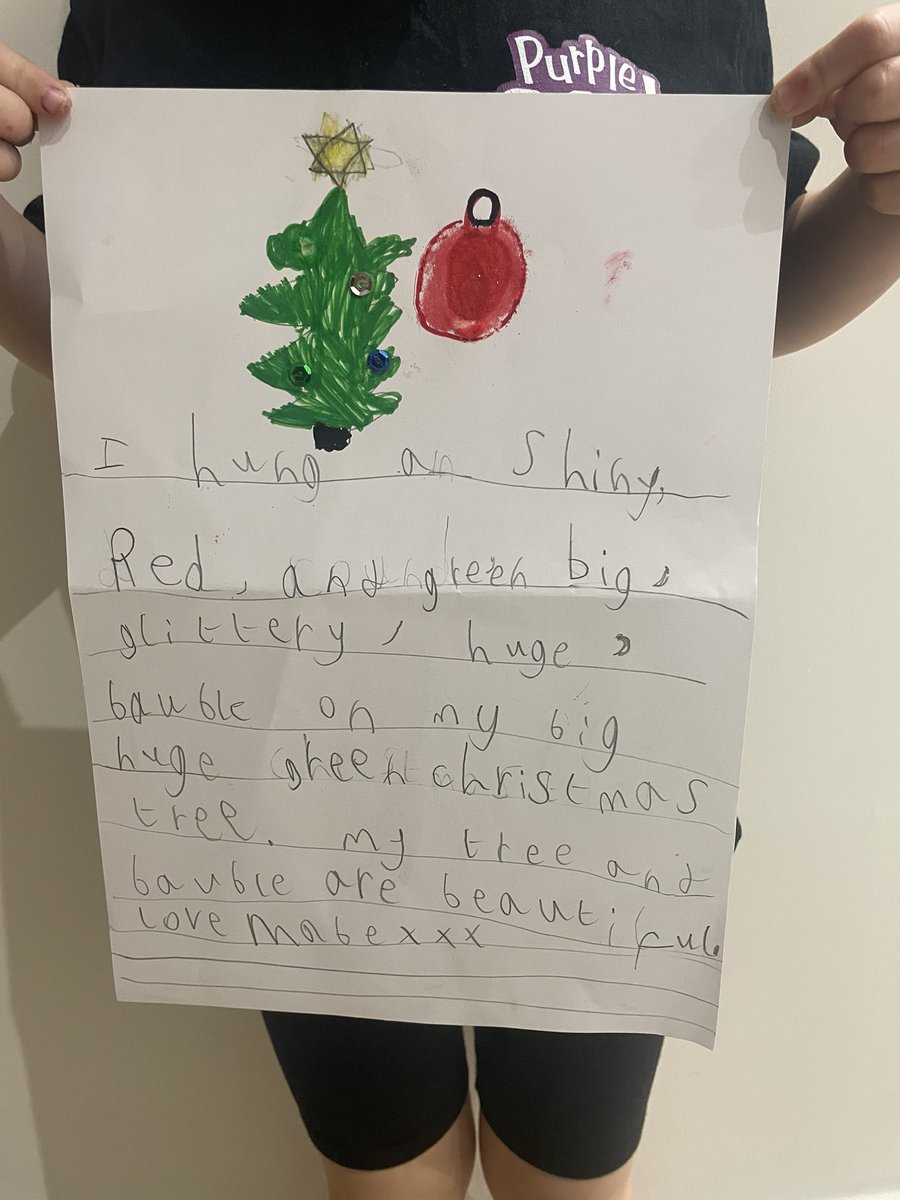 Purple
I hung an Shiny,
Red, and green big,
glittery, huge,
bauble on my big
huge green christmas
tree. my tree and
bauble are beautiful
love Mabexxx